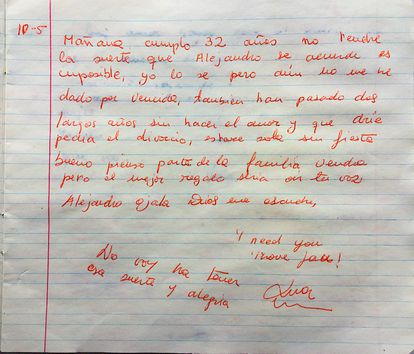 10-5
Mañana cumplo 32 años no tendré
la suerte que Alejandro se acuerde es
imposible, yo lo se pero aún no me he
dado por vencida, también han pasado dos
largos años sin hacer el amor y que
pedia el divorcio, estare sola sin fiesta
bueno pienso parte de la familia vendra
pero el mejor regalo seria oir tu voz
Alejandro ojala Dios me escuche,
I need you
No voy ha tener
esa suerte y alegria